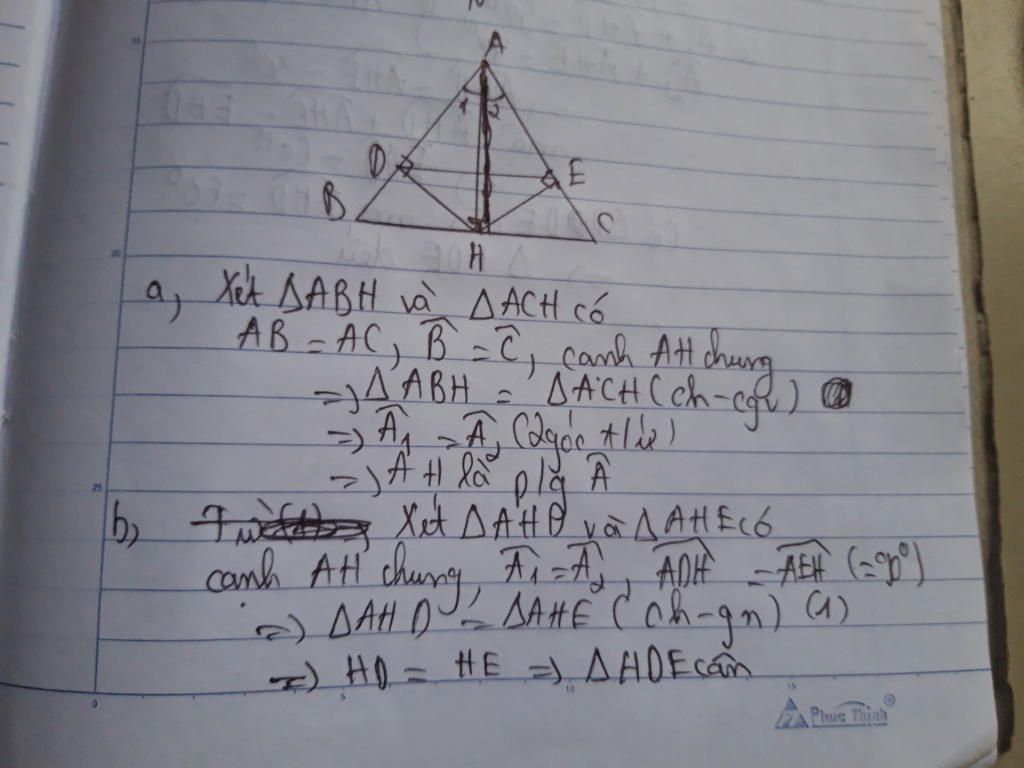 A
1 2
D E
B C
H
a, Xét ΔABH và ΔACH có
AB = AC, B̂ = Ĉ, cạnh AH chung
=> ΔABH = ΔACH (ch-cgv)
=> Â1 = Â2 (2 góc t/ứ)
=> AH là p/g Â
b, Xét ΔAHD và ΔAHE có
cạnh AH chung, Â1 = Â2, ADH = AEH (=90°)
=> ΔAHD = ΔAHE (ch-gn) (1)
=> HD = HE => ΔHDE cân
15
20
25
0 5 10 15
Phuc Thinh®